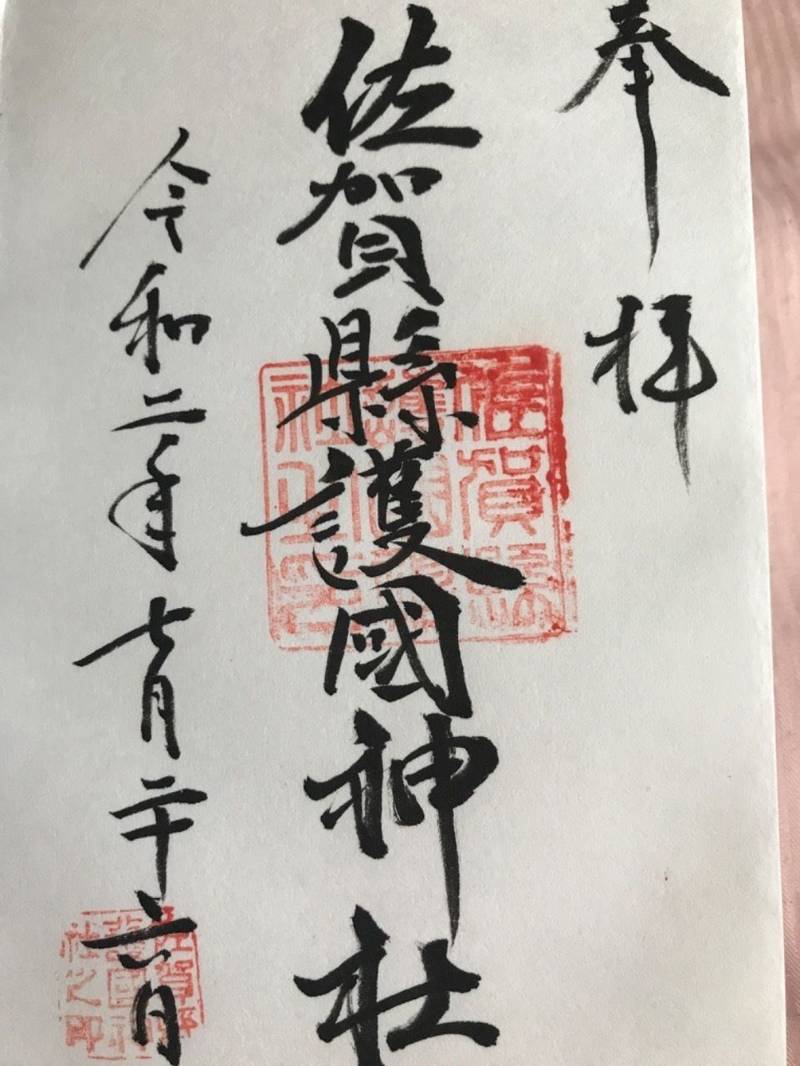 奉拝
佐賀縣護國神社
令和二年七月二十六日
佐賀縣
護國神
社之印
佐賀縣
護國神
社之印